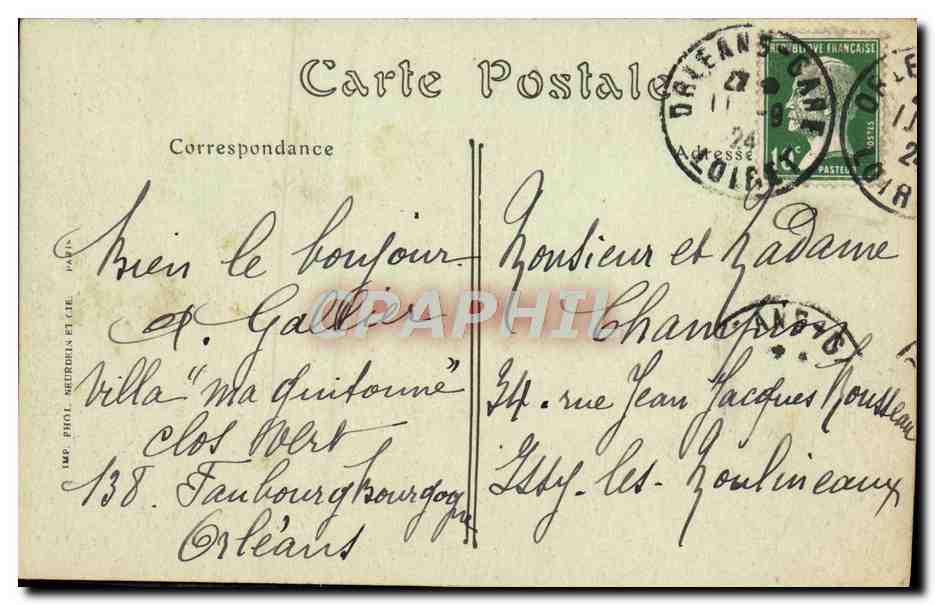 Carte Postale
Correspondance
Adresse
ORLEANS-GARE
11 -9
24
LOIRET
REPUBLIQUE FRANÇAISE
POSTES
PASTEUR
LOIR
Bien le bonjour
A. Gallier
Villa "ma quitonne"
Clos Vert
138. Faubourg Bourgogne
Orléans
Monsieur et Madame
Champion
34. rue Jean Jacques Rousseau
Issy-les-Moulineaux
IMP. PHOT. NEURDEIN ET CIE. PARIS
CPAPHIL